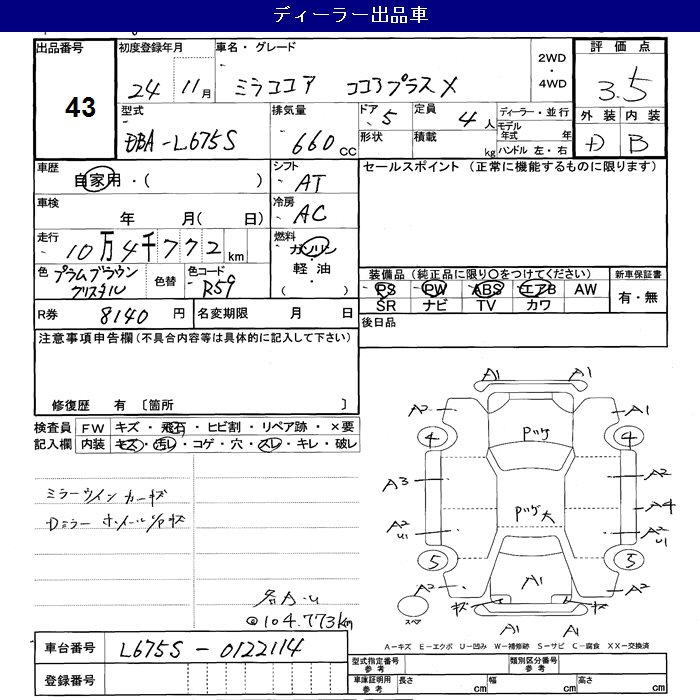 ディーラー出品車
出品番号
43
初度登録年月
24 11月
車名・グレード
ミラココア ココアプラスX
2WD
・
4WD
評価点
3.5
外装 内装
D B
型式
DBA-L675S
排気量
660 CC
ドア 5
定員 4人
形状
積載 kg
ディーラー・並行
モデル年式 年
ハンドル 左・右
車歴
自家用・( )
シフト
AT
セールスポイント (正常に機能するものに限ります)
車検
年 月( 日)
冷房
AC
走行
10万4千772km
燃料
ガソリン
軽油
・( )
色
プラムブラウン
クリスタル
色替
色コード
R59
装備品(純正品に限り○をつけてください)
PS PW ABS エアB AW
SR ナビ TV カワ
新車保証書
有・無
R券 8140円
名変期限 月 日
後日品
注意事項申告欄(不具合内容等は具体的に記入して下さい)
修復歴 有 〔箇所 〕
検査員
記入欄
FW キズ・飛石・ヒビ割・リペア跡・×要
内装 キズ・汚レ・コゲ・穴・スレ・キレ・破レ
ミラーウインカーキズ
Dミラー ホイールCapキズ
@104.773km
A1 A1
A2 A1
4 4
Pハゲ
A3 A2
Pハゲ大 A4
A2 U1 A2 U1
5 5
A2 A1 A2
キズ キズ
スペア
A1 A1
A-キズ E-エクボ U-凹み W-補修跡 S-サビ C-腐食 XX-交換済
車台番号
L675S-0122114
登録番号
型式指定番号
参考
類別区分番号
参考
車庫証明用
参考
長さ cm
幅 cm
高さ cm